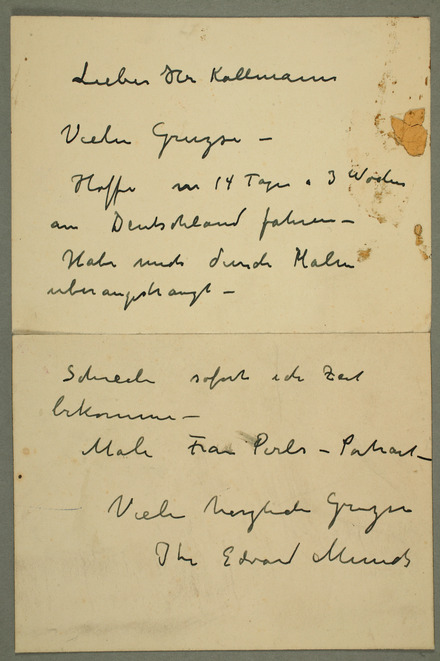 Lieber Hr Kollmann
Viele Gruzse –
Hoffe in 14 Tage a 3 Wochen
an Deutschland fahren –
Habe mich durch Malen
uberangstrangt –
Schreibe sofort ich Zeit
bekomme –
Male Frau Perls – Portrait –
Viele herzliche Gruzse
Ihr Edvard Munch